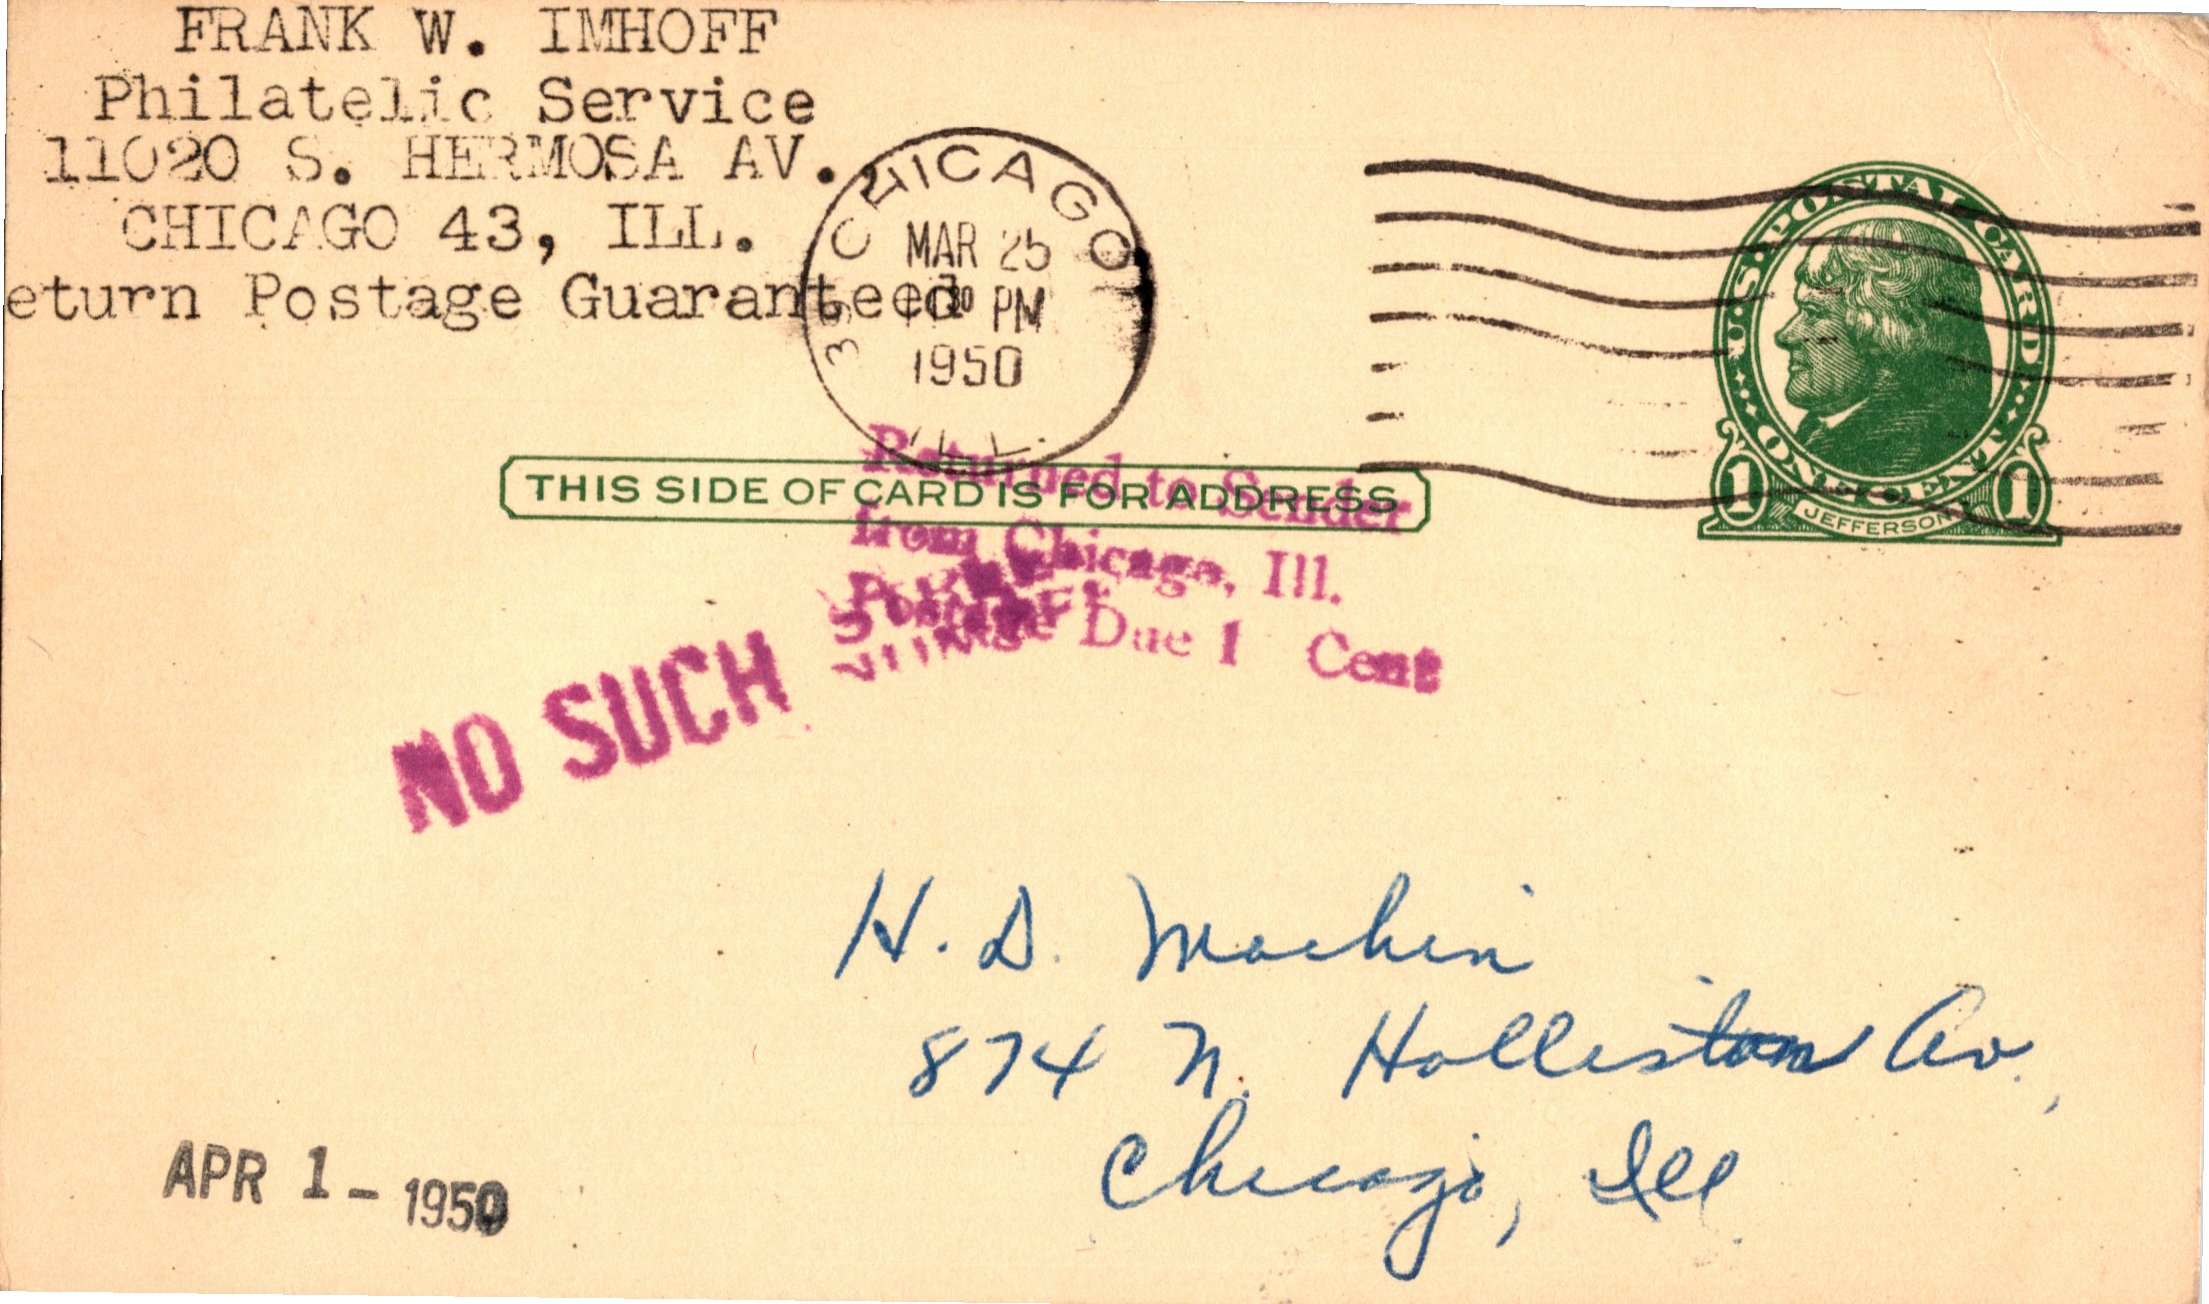 FRANK W. IMHOFF
Philatelic Service
11020 S. HERMOSA AV.
CHICAGO 43, ILL.
eturn Postage Guaranteed
CHICAGO
MAR 25
PM
1950
ILL.
U.S. POSTAL CARD
ONE CENT
1 1
JEFFERSON
THIS SIDE OF CARD IS FOR ADDRESS
Returned to Sender
from Chicago, Ill.
Postage Due 1 Cent
NO SUCH
NUMBER
H. D. Machin
874 N. Holliston Av.,
Chicago, Ill
APR 1 - 1950